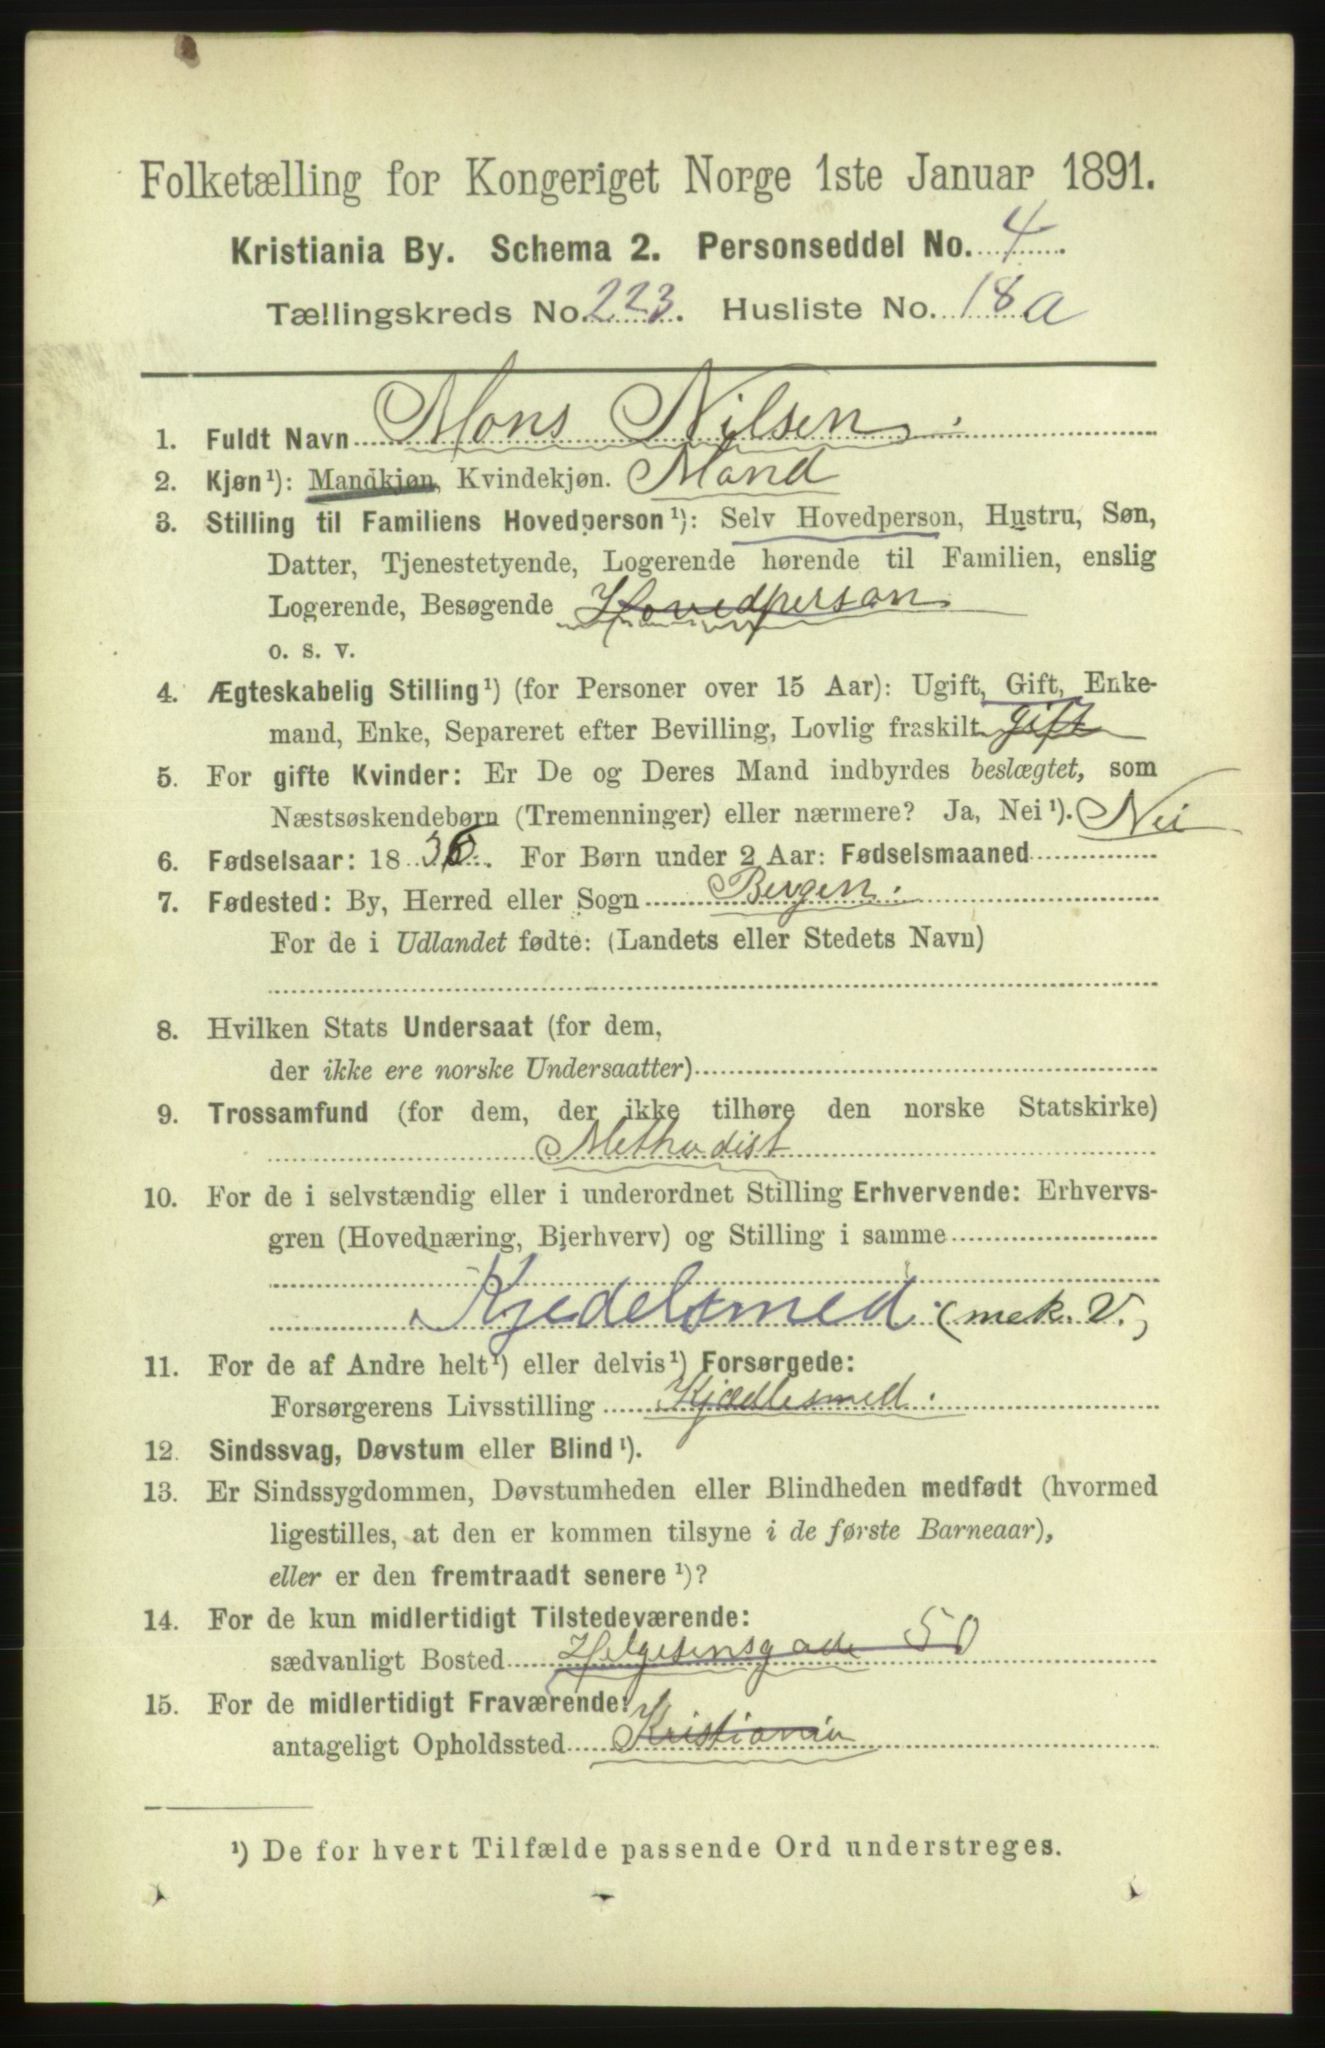 Folketælling for Kongeriget Norge 1ste Januar 1891.
Kristiania By. Schema 2. Personseddel No. 4.
Tællingskreds No. 223. Husliste No. 18a
1. Fuldt Navn Mons Nilsen.
2. Kjøn¹): Mandkjøn, Kvindekjøn. Mand
3. Stilling til Familiens Hovedperson¹): Selv Hovedperson, Hustru, Søn,
Datter, Tjenestetyende, Logerende hørende til Familien, enslig
Logerende, Besøgende Hovedperson
o. s. v.
4. Ægteskabelig Stilling¹) (for Personer over 15 Aar): Ugift, Gift, Enke-
mand, Enke, Separeret efter Bevilling, Lovlig fraskilt gift
5. For gifte Kvinder: Er De og Deres Mand indbyrdes beslægtet, som
Næstsøskendebørn (Tremenninger) eller nærmere? Ja, Nei¹). Nei
6. Fødselsaar: 1836. For Børn under 2 Aar: Fødselsmaaned
7. Fødested: By, Herred eller Sogn Bergen.
For de i Udlandet fødte: (Landets eller Stedets Navn)
8. Hvilken Stats Undersaat (for dem,
der ikke ere norske Undersaatter)
9. Trossamfund (for dem, der ikke tilhøre den norske Statskirke)
Methodist
10. For de i selvstændig eller i underordnet Stilling Erhvervende: Erhvervs-
gren (Hovednæring, Bierhverv) og Stilling i samme
Kjedelsmed (mek. V.)
11. For de af Andre helt¹) eller delvis¹) Forsørgede:
Forsørgerens Livsstilling Kjædlesmed.
12. Sindssvag, Døvstum eller Blind¹).
13. Er Sindssygdommen, Døvstumheden eller Blindheden medfødt (hvormed
ligestilles, at den er kommen tilsyne i de første Barneaar),
eller er den fremtraadt senere¹)?
14. For de kun midlertidigt Tilstedeværende:
sædvanligt Bosted Helgesensgade 50
15. For de midlertidigt Fraværende:
antageligt Opholdssted Kristiania
¹) De for hvert Tilfælde passende Ord understreges.